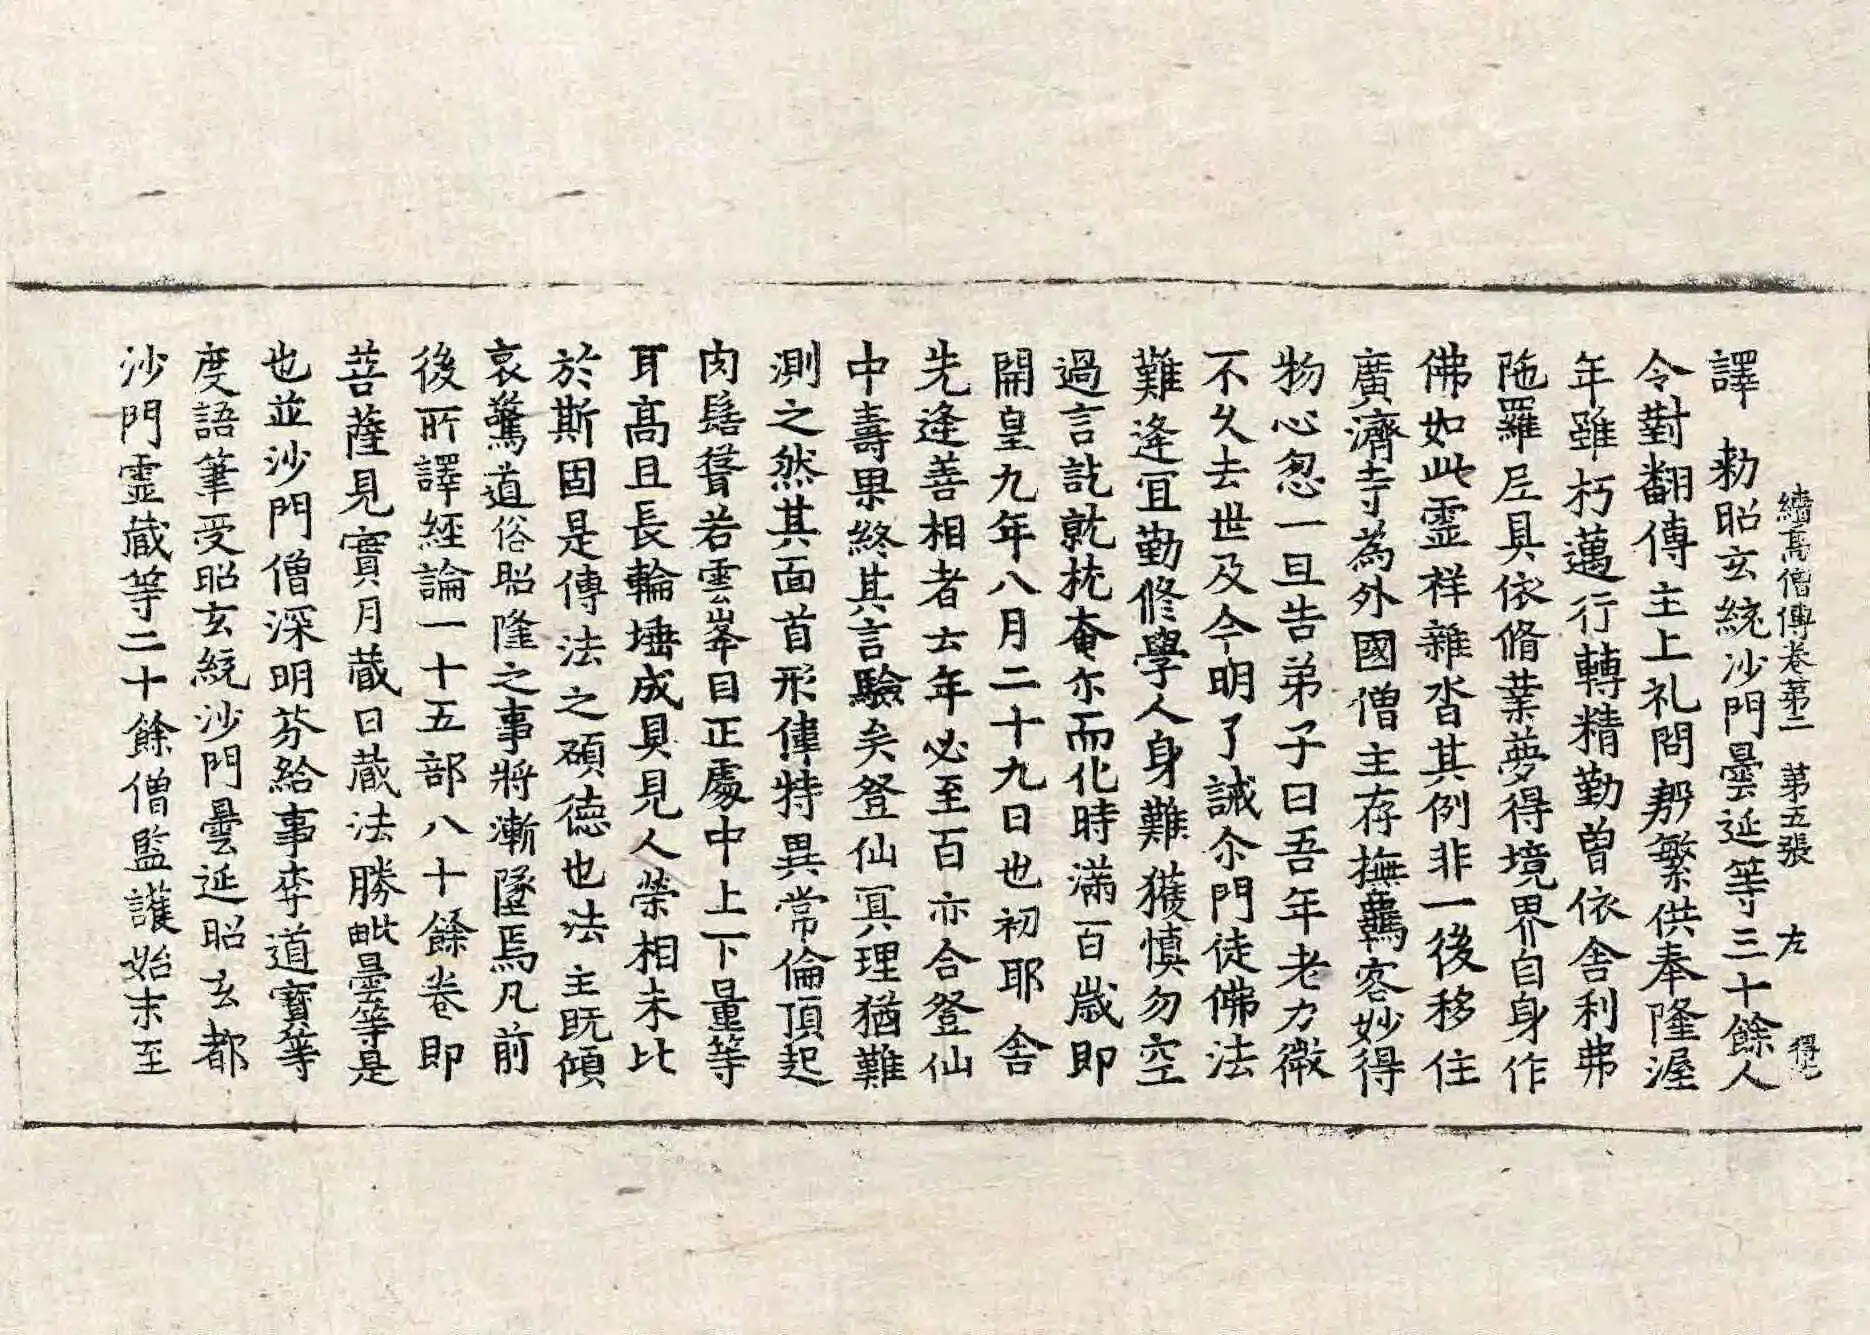 續高僧傳卷第二　第五張　左
譯　勅昭玄統沙門曇延等三十餘人
令對翻傳主上礼問殷繁供奉隆渥
年雖朽邁行轉精勤曾依舍利弗
陁羅尼具依脩業夢得境界自身作
佛如此靈祥雜沓其例非一後移住
廣濟寺為外國僧主存撫羈客妙得
物心忽一旦告弟子曰吾年老力微
不久去世及今明了誡尒門徒佛法
難逢宜勤修學人身難獲慎勿空
過言訖就枕奄尒而化時滿百歲即
開皇九年八月二十九日也初耶舍
先逢善相者云年必至百亦合登仙
中壽果終其言驗矣登仙冥理猶難
測之然其面首形偉特異常倫頂起
肉髻聳若雲峯目正處中上下量等
耳高且長輪埵成具見人榮相未比
於斯固是傳法之碩德也法主既傾
哀驚道俗昭隆之事將漸墜焉凡前
後所譯經論一十五部八十餘卷即
菩薩見實月藏日藏法勝毗曇等是
也並沙門僧深明芬給事李道寶等
度語筆受昭玄統沙門曇延昭玄都
沙門靈藏等二十餘僧監護始末至